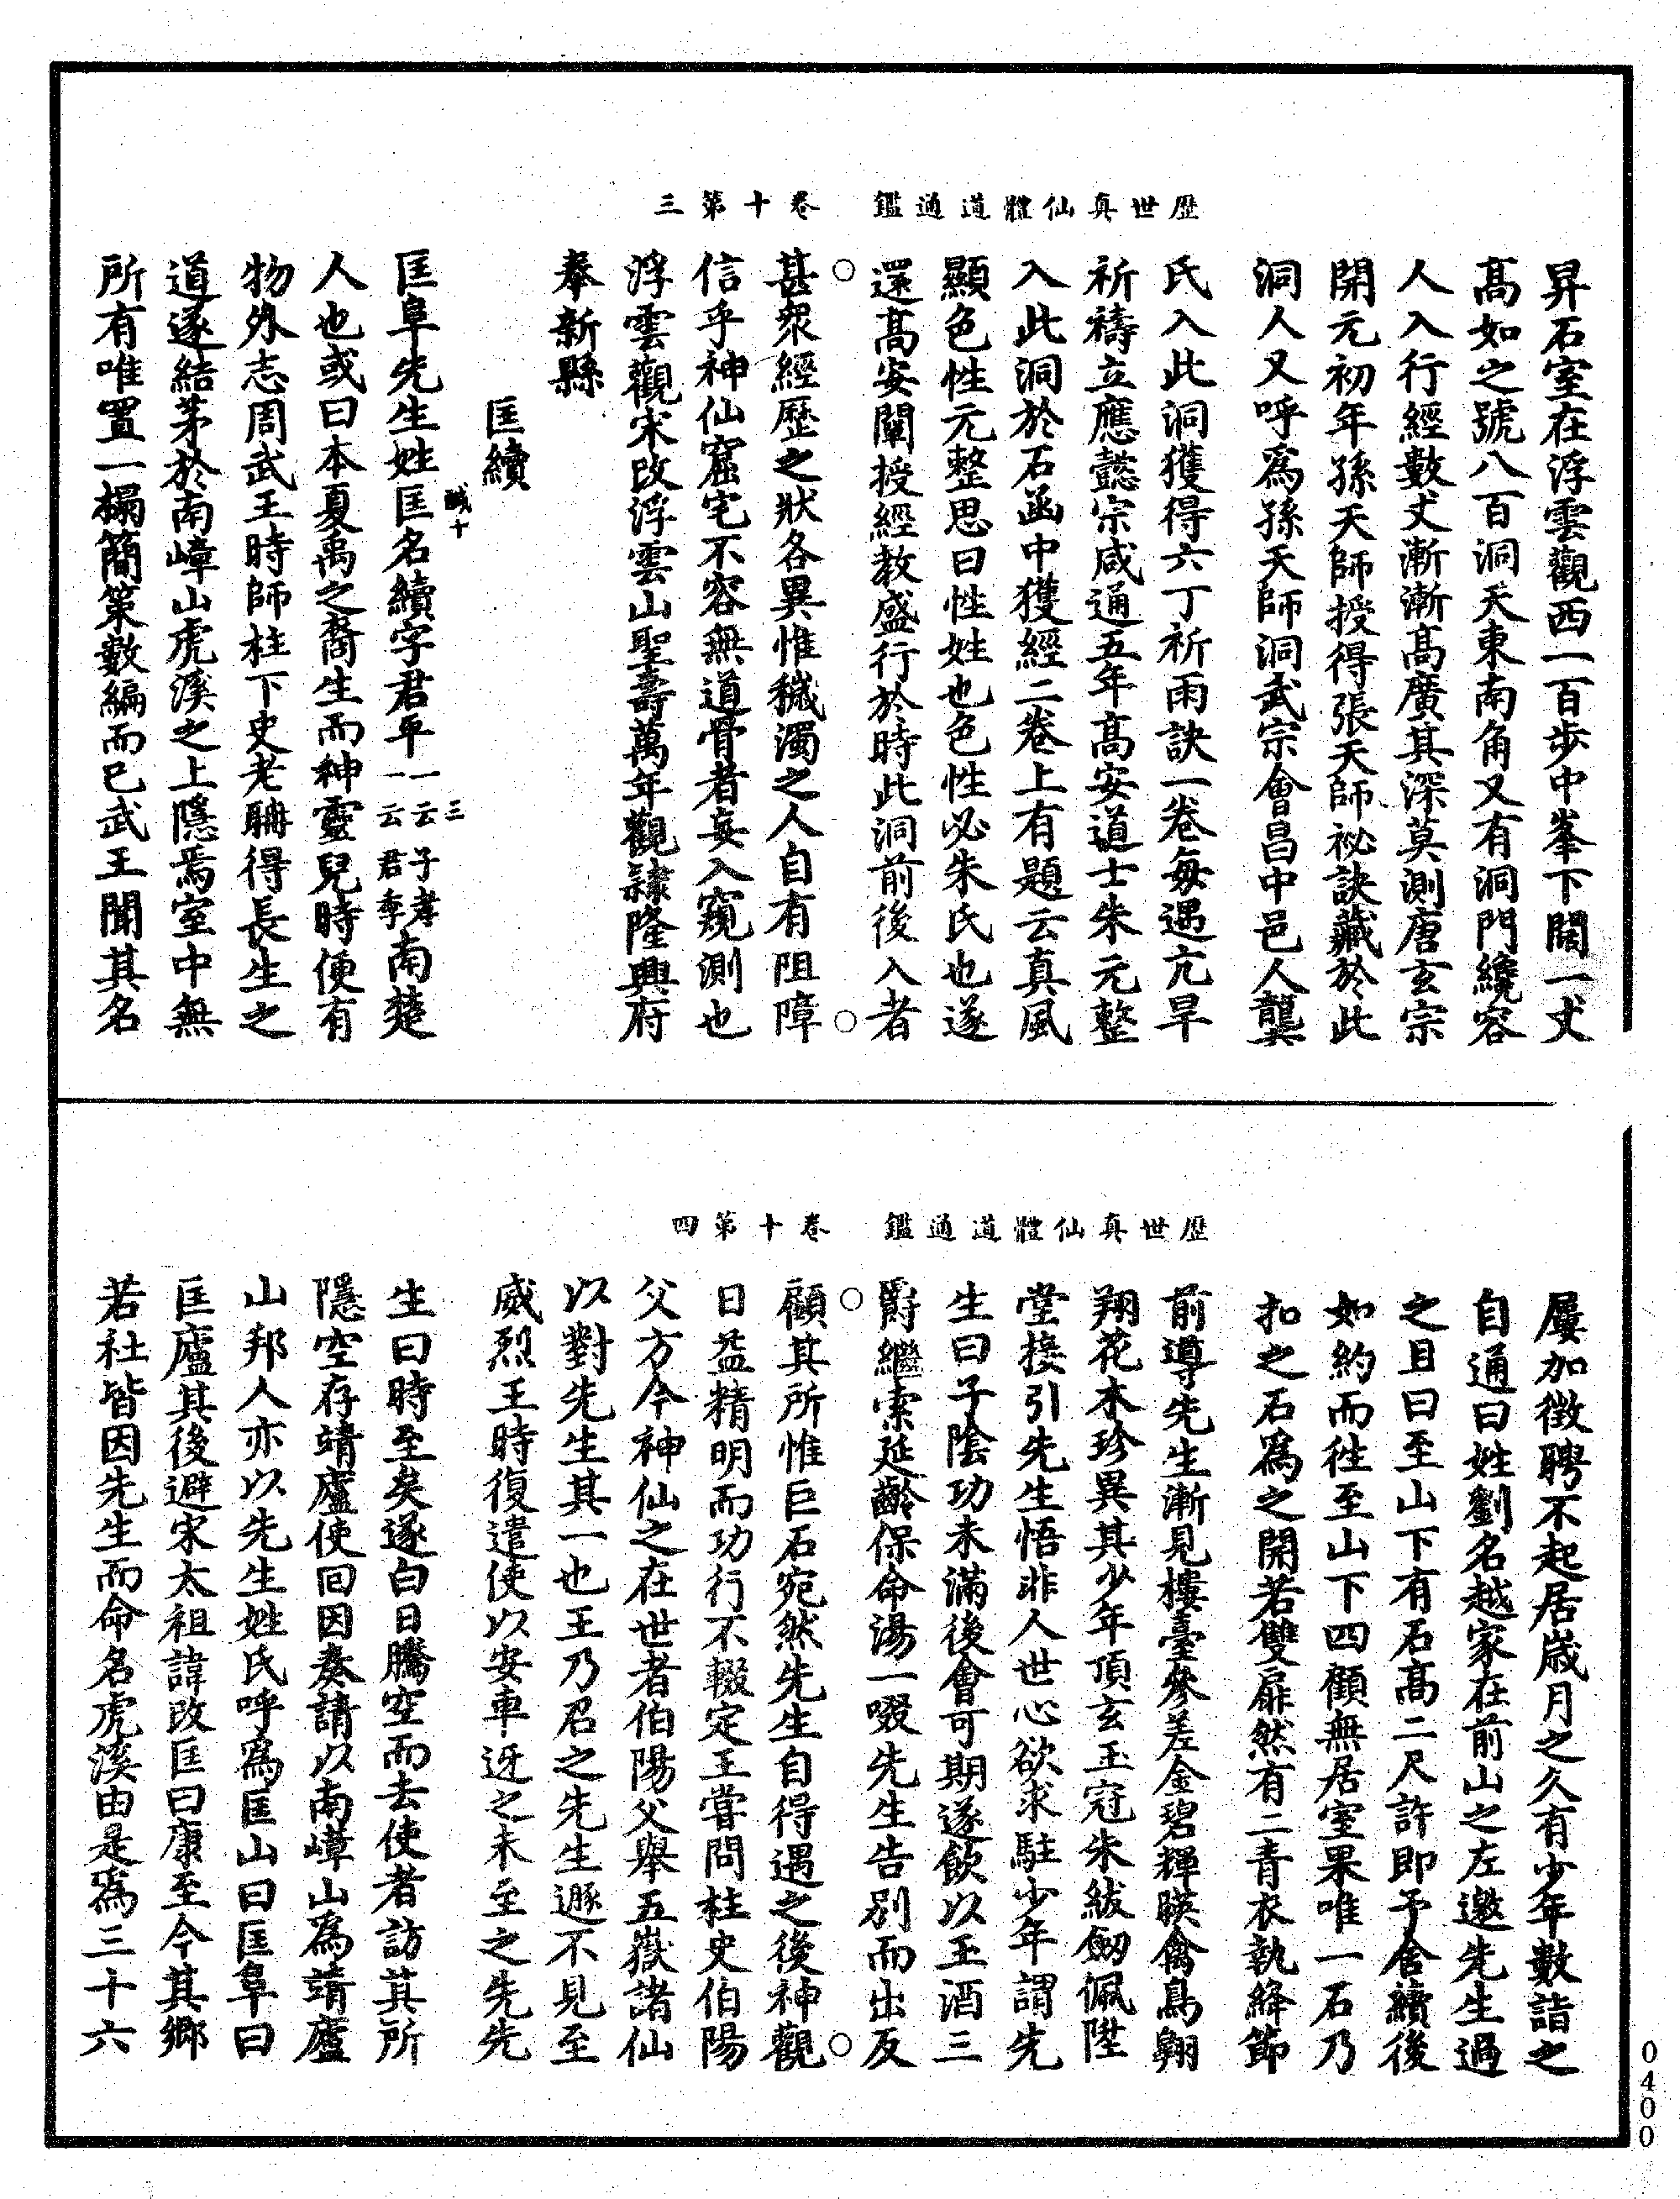 歷世真仙體道通鑑　卷十第三
昇石室在浮雲觀西一百步中峯下闊一丈
高如之號八百洞天東南角又有洞門纔容
人入行經數丈漸漸高廣其深莫測唐玄宗
開元初年孫天師授得張天師祕訣藏於此
洞人又呼爲孫天師洞武宗會昌中邑人龔
氏入此洞獲得六丁祈雨訣一卷每遇亢旱
祈禱立應懿宗咸通五年高安道士朱元整
入此洞於石函中獲經二卷上有題云真風
顯色性元整思曰性姓也色性必朱氏也遂
還高安闡授經教盛行於時此洞前後入者
甚衆經歷之狀各異惟穢濁之人自有阻障
信乎神仙窟宅不容無道骨者妄入窺測也
浮雲觀宋改浮雲山聖壽萬年觀隸隆興府
奉新縣
匡續
鹹十　三
匡阜先生姓匡名續字君平一云子孝一云君季南楚
人也或曰本夏禹之裔生而神靈兒時便有
物外志周武王時師柱下史老聃得長生之
道遂結茅於南嶂山虎溪之上隱焉室中無
所有唯置一榻簡策數編而已武王聞其名
歷世真仙體道通鑑　卷十第四
屢加徵聘不起居歲月之久有少年數詣之
自通曰姓劉名越家在前山之左邀先生過
之且曰至山下有石高二尺許即予舍續後
如約而往至山下四顧無居室果唯一石乃
扣之石爲之開若雙扉然有二青衣執絳節
前導先生漸見樓臺參差金碧輝暎禽鳥翱
翔花木珍異其少年頂玄玉冠朱紱劒佩陞
堂接引先生悟非人世心欲求駐少年謂先
生曰子陰功未滿後會可期遂飲以玉酒三
爵繼索延齡保命湯一啜先生告別而出反
顧其所惟巨石宛然先生自得遇之後神觀
日益精明而功行不輟定王嘗問柱史伯陽
父方今神仙之在世者伯陽父舉五嶽諸仙
以對先生其一也王乃召之先生遯不見至
威烈王時復遣使以安車迓之未至之先先
生曰時至矣遂白日騰空而去使者訪其所
隱空存靖廬使回因奏請以南嶂山爲靖廬
山邦人亦以先生姓氏呼爲匡山曰匡阜曰
匡廬其後避宋太祖諱改匡曰康至今其鄉
若社皆因先生而命名虎溪由是爲三十六
0400